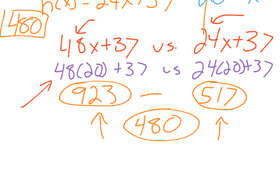 h(x) = 24x+37
480
48x+37 vs 24x+37
48(20)+37 us 24(20)+37
923 — 517
480